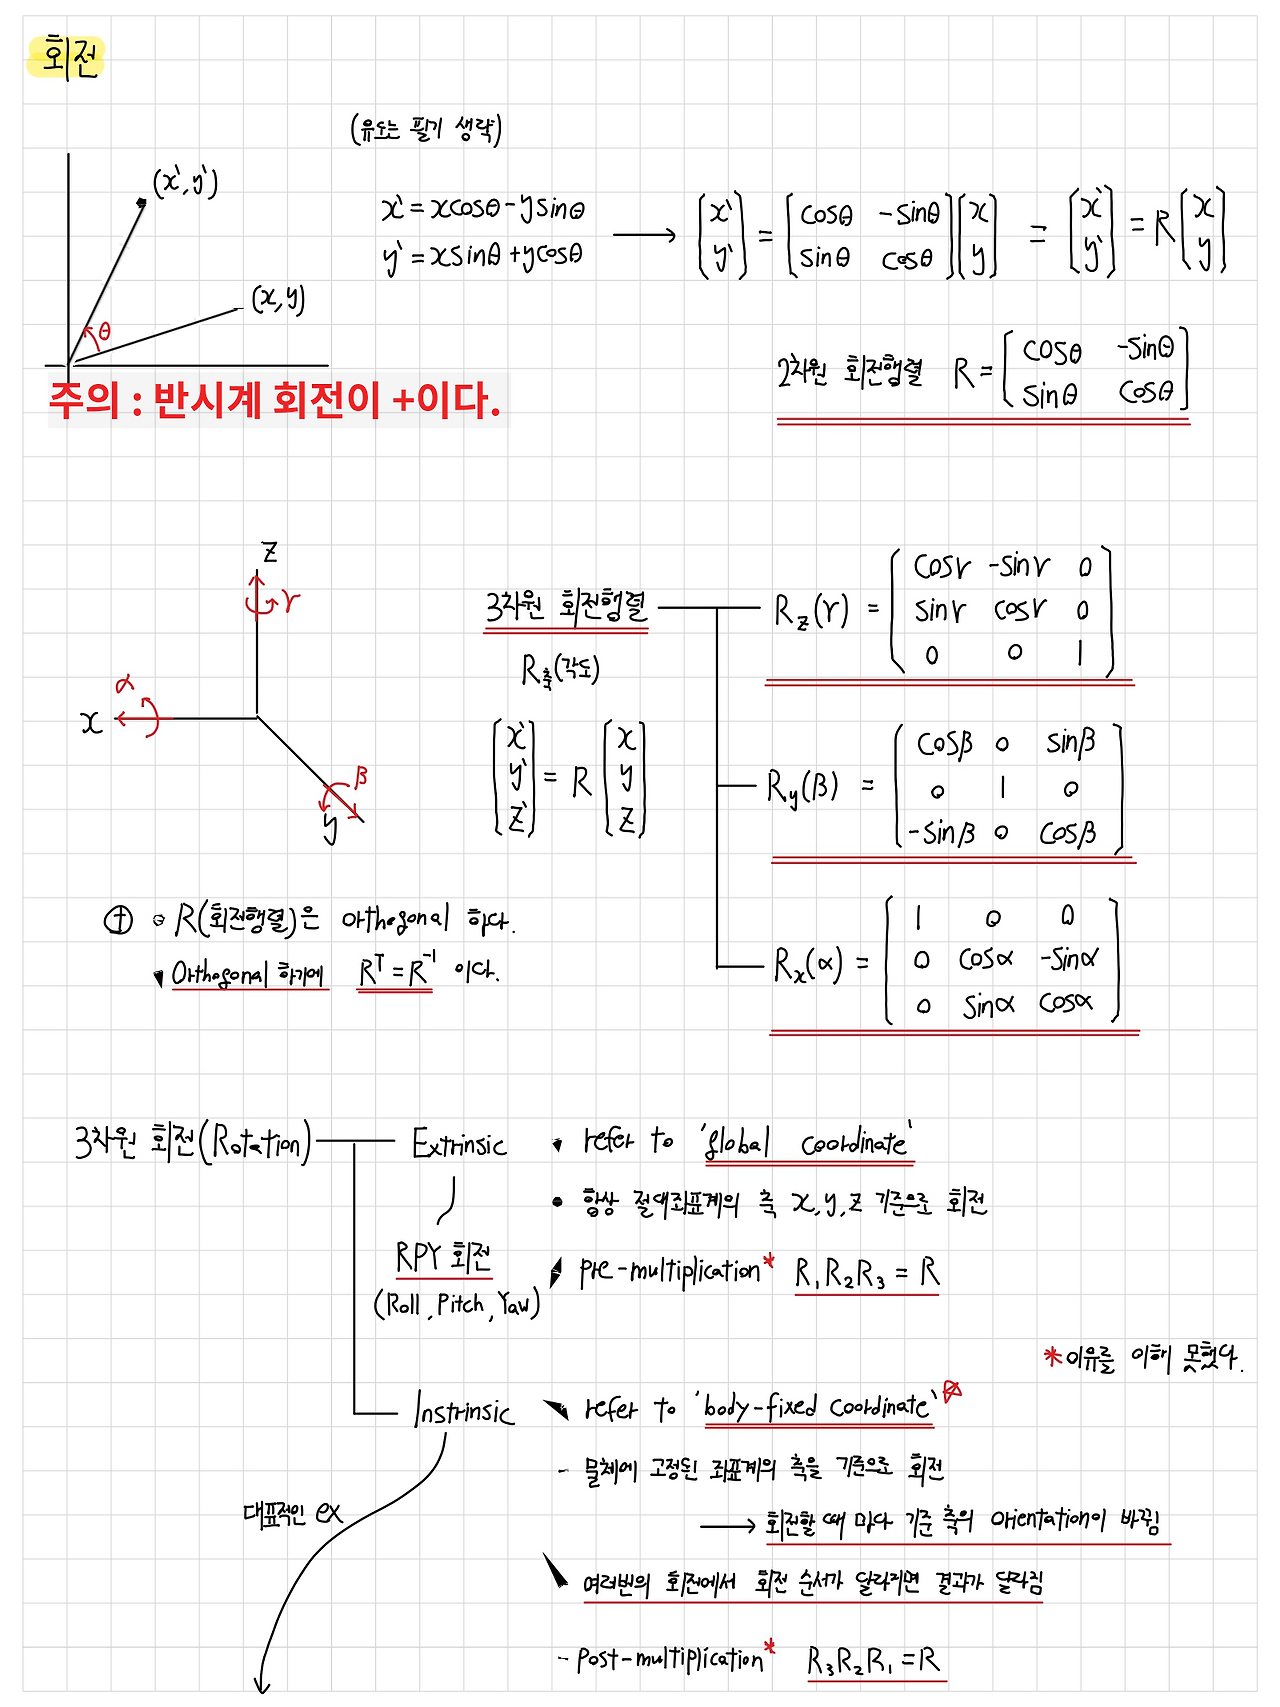 회전
(유도는 필기 생략)
(x`, y`)
x` = xcosθ - ysinθ
y` = xsinθ + ycosθ
[x` y`] = [cosθ -sinθ sinθ cosθ] [x y] = [x` y`] = R [x y]
(x, y)
θ
2차원 회전행렬 R = [cosθ -sinθ sinθ cosθ]
주의 : 반시계 회전이 +이다.
z
r
α
x
β
y
3차원 회전행렬
R축(각도)
[x` y` z`] = R [x y z]
Rz(r) = [cosr -sinr 0
sinr cosr 0
0 0 1]
Ry(β) = [cosβ 0 sinβ
0 1 0
-sinβ 0 cosβ]
Rx(α) = [1 0 0
0 cosα -sinα
0 sinα cosα]
+ R(회전행렬)은 orthogonal 하다.
Orthogonal 하기에 Rᵀ = R⁻¹ 이다.
3차원 회전(Rotation)
Extrinsic
refer to 'global coordinate'
항상 절대좌표계의 축 x, y, z 기준으로 회전
RPY 회전
(Roll, Pitch, Yaw)
pre-multiplication* R₁R₂R₃ = R
*이유를 이해 못했다.
Instrinsic
refer to 'body-fixed coordinate'☆
- 물체에 고정된 좌표계의 축을 기준으로 회전
→ 회전할 때 마다 기준 축의 orientation이 바뀜
대표적인 ex
여러번의 회전에서 회전 순서가 달라지면 결과가 달라짐
- post-multiplication* R₃R₂R₁ = R